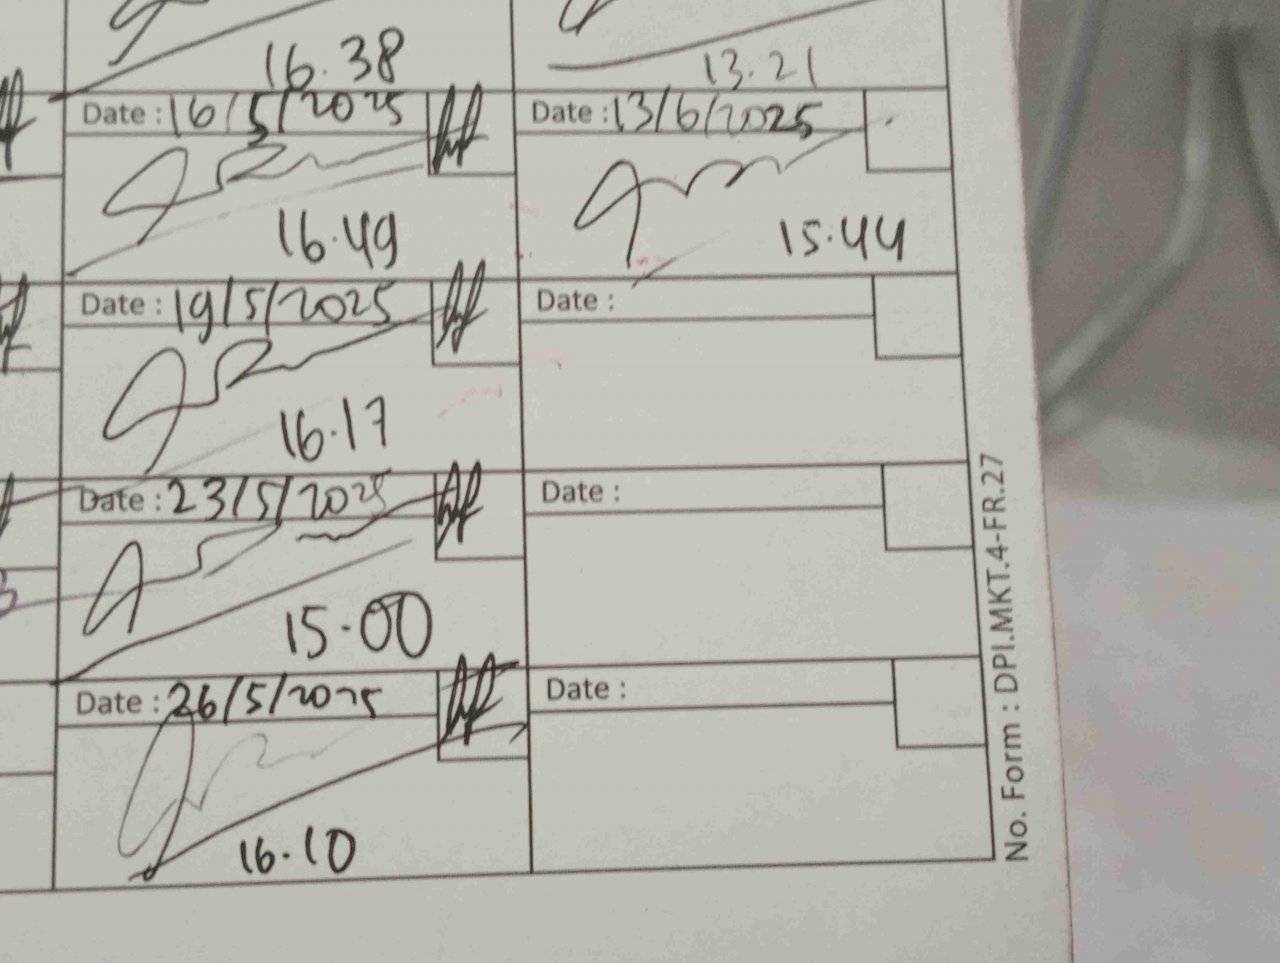 16.38
Date : 16/5/2025
16.49
Date : 19/5/2025
16.17
Date : 23/5/2025
15.00
Date : 26/5/2025
16.10
13.21
Date : 13/6/2025
15.44
Date :
Date :
Date :
No. Form : DPI.MKT.4-FR.27